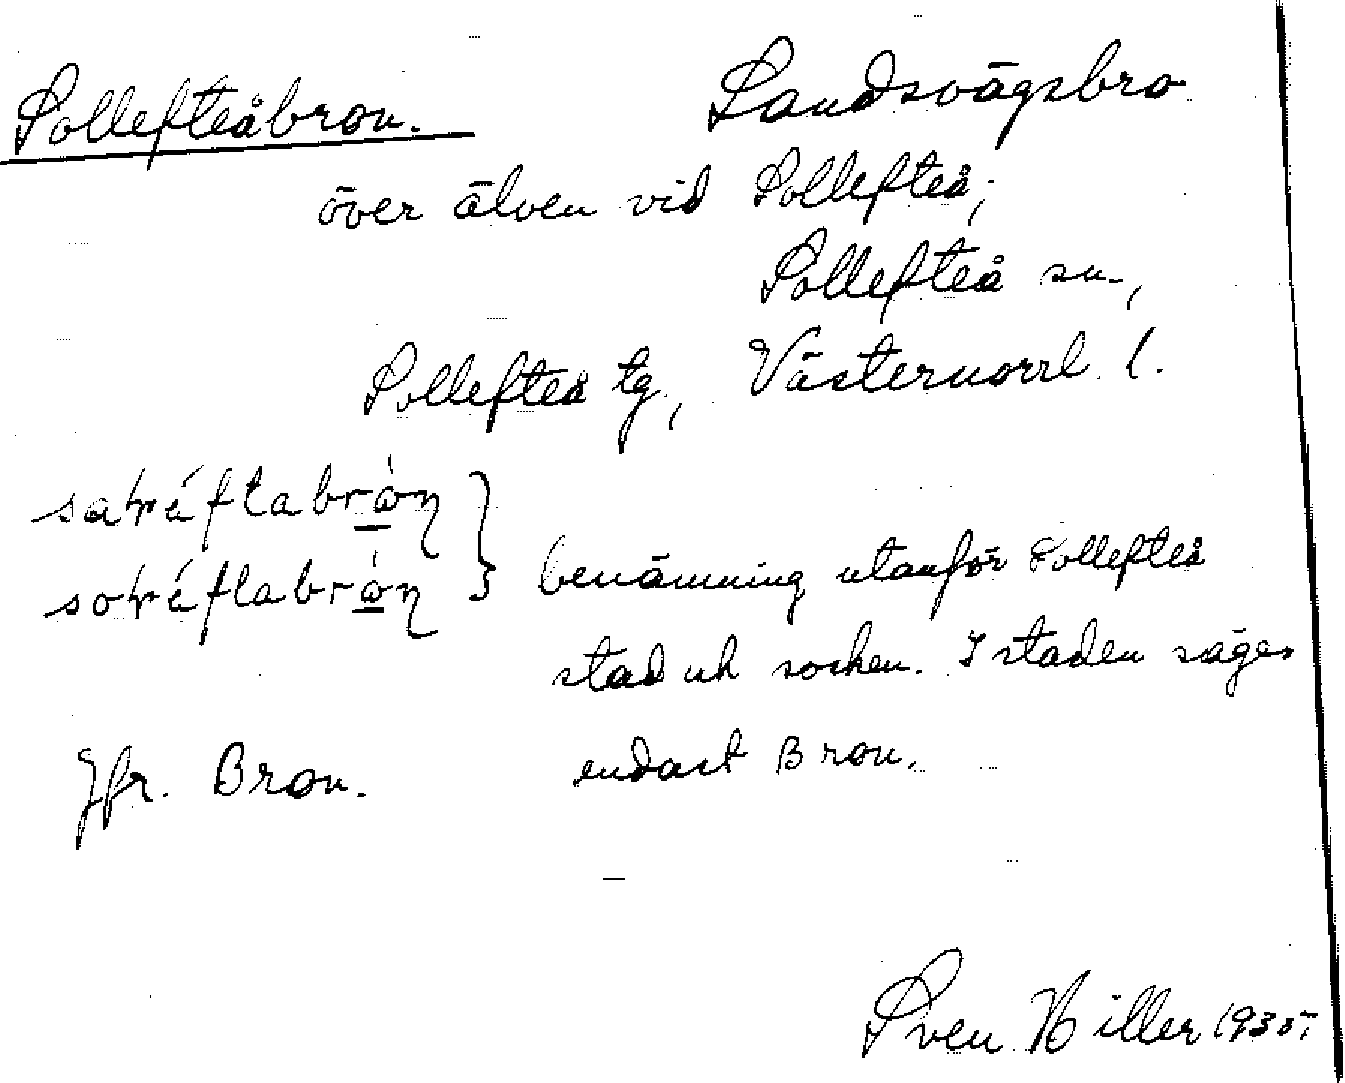 Sollefteåbron. Landsvägsbro
över älven vid Sollefteå,
Sollefteå sn.,
Sollefteå tg., Västernorrl. l.
benämning utanför Sollefteå
stad och socken. I staden säges
Jfr. Bron. endast Bron.
Sven Hiller 1935